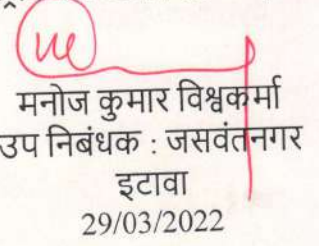 मनोज कुमार विश्वकर्मा
उप निबंधक : जसवंतनगर
इटावा
29/03/2022